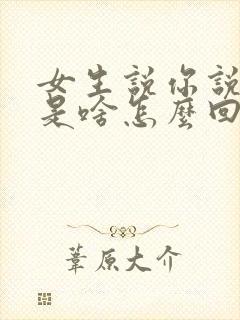 女生說你說
是啥怎麼回
葦原大介